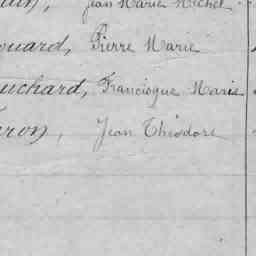 Jean Marie Michel
ouard, Pierre Marie
uchard, Francisque Marie
ron, Jean Théodore